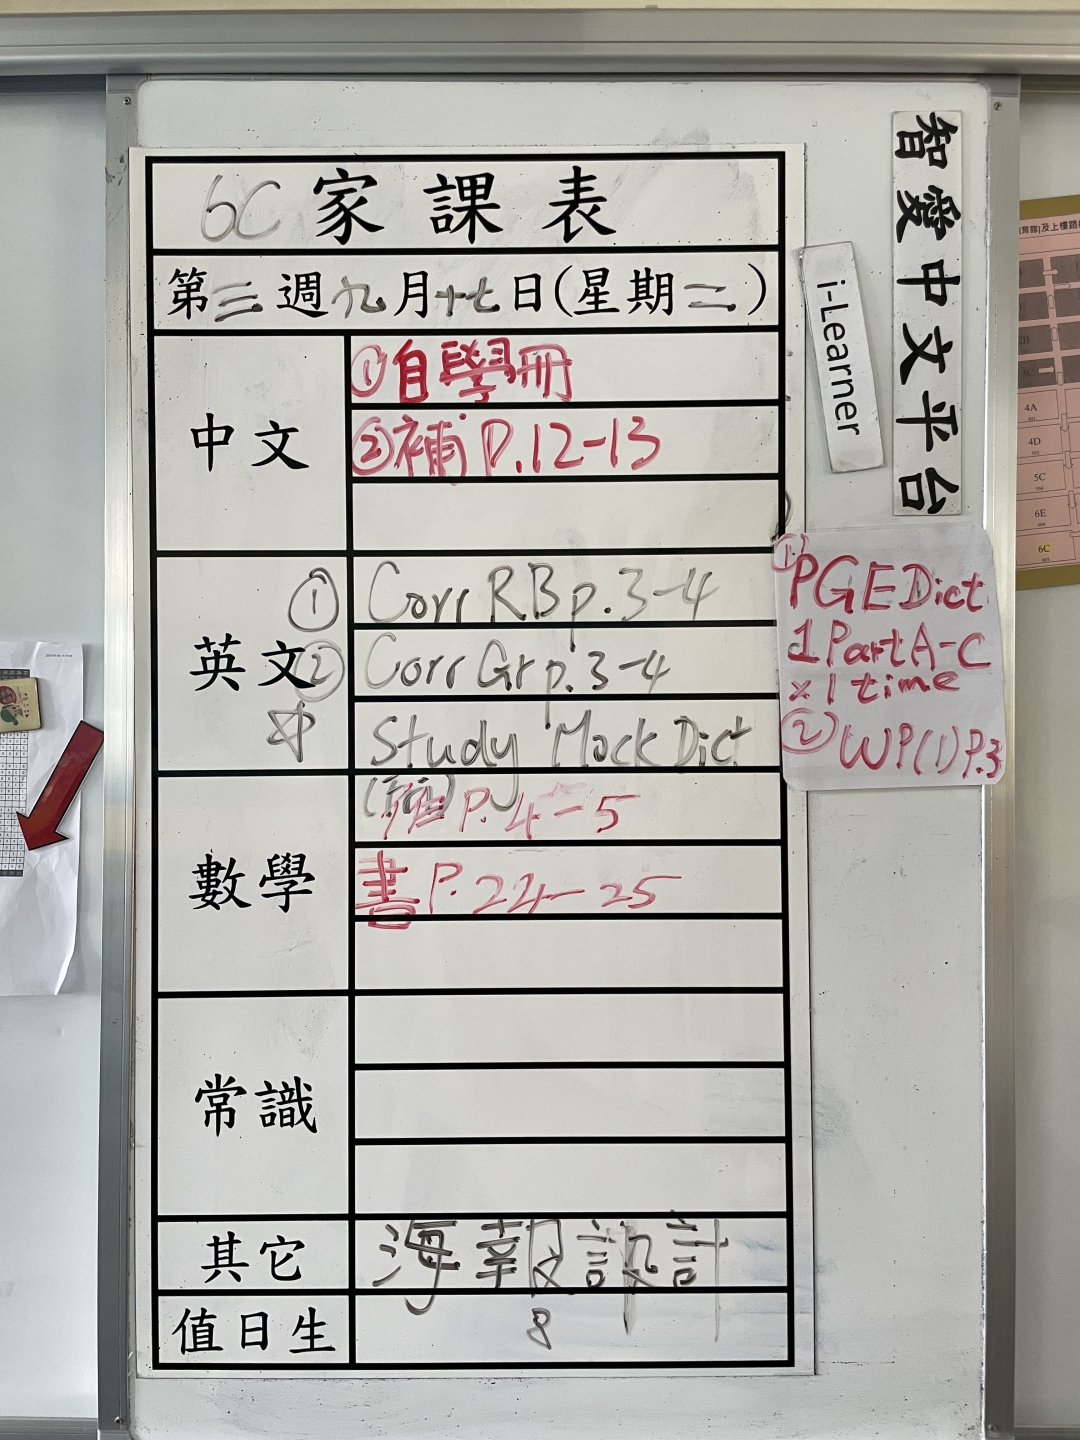 6C 家課表
第三週九月十七日(星期二)
中文
①自學冊
②補P.12-13
英文
① Corr RB p.3-4
② Corr Gr p.3-4
☆ Study Mock Dict
數學
P.4-5
書P.22-25
常識
其它
海報設計
值日生
8
i-Learner
智愛中文平台
①PGE Dict
1 Part A-C
x 1 time
② WP(1)P.3
4A
4D
5C
6E
6C